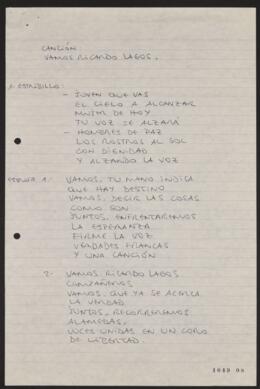 CANCIÓN
VAMOS RICARDO LAGOS.
ESTRIBILLO:
- JOVEN QUE VAS
EL CIELO A ALCANZAR
MUJER DE HOY
TU VOZ SE ALZARÁ
- HOMBRES DE PAZ
LOS ROSTROS AL SOL
CON DIGNIDAD
Y ALZANDO LA VOZ
1.- VAMOS, TU MANO INDICA
QUE HAY DESTINO
VAMOS, DECIR LAS COSAS
COMO SON
JUNTOS, ENFRENTAREMOS
LA ESPERANZA
FIRME LA VOZ
VERDADES FRANCAS
Y UNA CANCIÓN
2.- VAMOS, RICARDO LAGOS
COMPAÑEROS
VAMOS, QUE YA SE ACERCA
LA VERDAD
JUNTOS, RECORREREMOS
ALAMEDAS,
LUCES UNIDAS EN UN CORO
DE LIBERTAD.